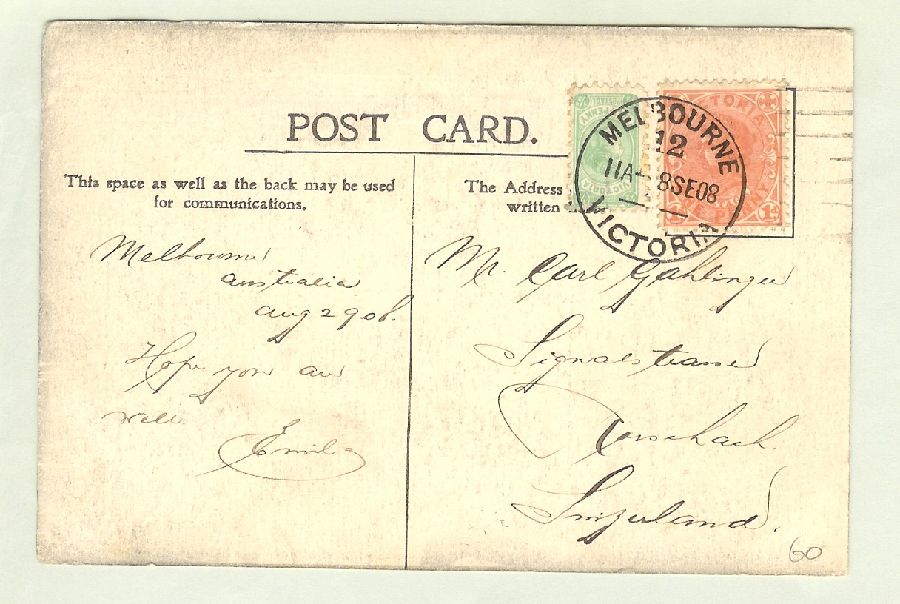 POST CARD.
This space as well as the back may be used
for communications.
The Address
written
MELBOURNE
12
11A 8SE08
VICTORIA
VICTORIA
Melbourne
Australia
Aug 29 08.
Hope you are
well
Emil
Mr. Carl Gahlinger
Signalstrasse
Rorschach
Switzerland.
60